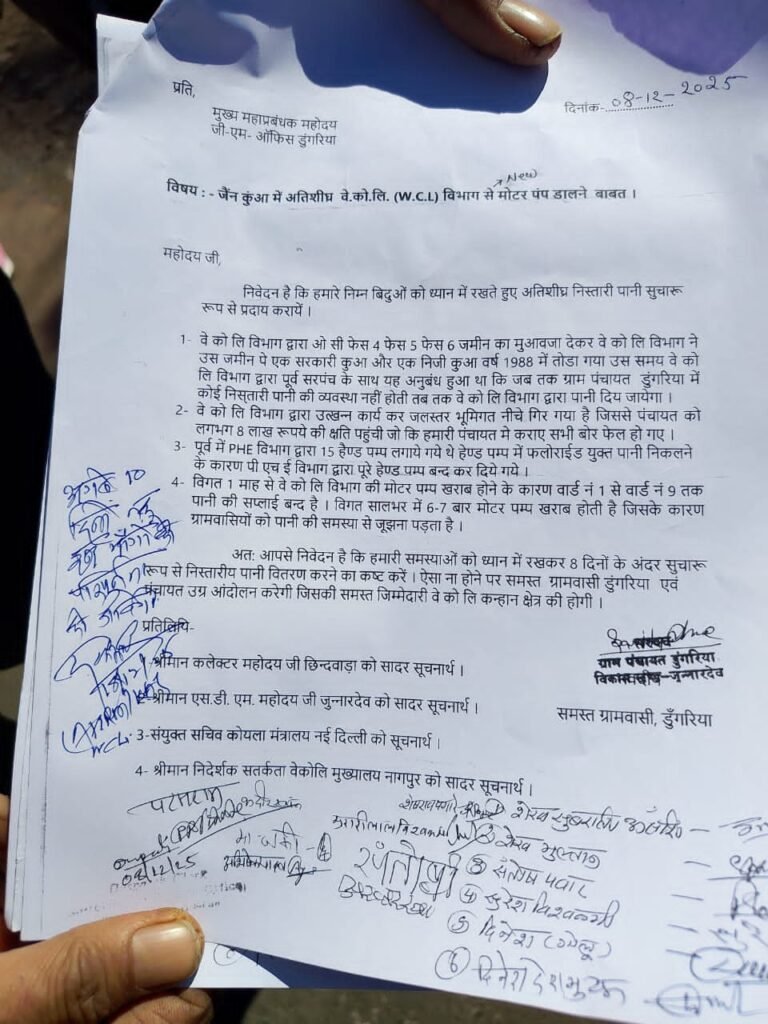 प्रति,
दिनांक- 08-12-2025
मुख्य महाप्रबंधक महोदय
जी-एम- ऑफिस डुंगरिया
New
विषय : - जैंन कुंआ में अतिशीघ्र वे.को.लि. (W.C.L) विभाग से मोटर पंप डालने बाबत ।
महोदय जी,
निवेदन है कि हमारे निम्न बिदुओं को ध्यान में रखते हुए अतिशीघ्र निस्तारी पानी सुचारू
रूप से प्रदाय करायें ।
1- वे को लि विभाग द्वारा ओ सी फेस 4 फेस 5 फेस 6 जमीन का मुआवजा देकर वे को लि विभाग ने
उस जमीन पे एक सरकारी कुआ और एक निजी कुआ वर्ष 1988 में तोडा गया उस समय वे को
लि विभाग द्वारा पूर्व सरपंच के साथ यह अनुबंध हुआ था कि जब तक ग्राम पंचायत डुंगरिया में
कोई निस्तारी पानी की व्यवस्था नहीं होती तब तक वे को लि विभाग द्वारा पानी दिय जायेगा ।
2- वे को लि विभाग द्वारा उत्खन्न कार्य कर जलस्तर भूमिगत नीचे गिर गया है जिससे पंचायत को
लगभग 8 लाख रूपये की क्षति पहुंची जो कि हमारी पंचायत मे कराए सभी बोर फेल हो गए ।
3- पूर्व में PHE विभाग द्वारा 15 हैण्ड पम्प लगाये गये थे हेण्ड पम्प में फलोराईड युक्त पानी निकलने
के कारण पी एच ई विभाग द्वारा पूरे हेण्ड पम्प बन्द कर दिये गये ।
4- विगत 1 माह से वे को लि विभाग की मोटर पम्प खराब होने के कारण वार्ड नं 1 से वार्ड नं 9 तक
पानी की सप्लाई बन्द है । विगत सालभर में 6-7 बार मोटर पम्प खराब होती है जिसके कारण
ग्रामवासियों को पानी की समस्या से जूझना पड़ता है ।
अगले 10
दिनों
अत: आपसे निवेदन है कि हमारी समस्याओं को ध्यान में रखकर 8 दिनों के अंदर सुचारू
रूप से निस्तारीय पानी वितरण करने का कष्ट करें । ऐसा ना होने पर समस्त ग्रामवासी डुंगरिया एवं
पंचायत उग्र आंदोलन करेगी जिसकी समस्त जिम्मेदारी वे को लि कन्हान क्षेत्र की होगी ।
प्रतिलिपि-
सरपंच
ग्राम पंचायत डुंगरिया
विकासखंड-जुन्नारदेव
1-श्रीमान कलेक्टर महोदय जी छिन्दवाड़ा को सादर सूचनार्थ ।
2-श्रीमान एस.डी. एम. महोदय जी जुन्नारदेव को सादर सूचनार्थ ।
समस्त ग्रामवासी, डुँगरिया
WCL
3-संयुक्त सचिव कोयला मंत्रालय नई दिल्ली को सूचनार्थ ।
4- श्रीमान निदेर्शक सतर्कता वेकोलि मुख्यालय नागपुर को सादर सूचनार्थ ।
08/12/25
② शेख मुस्तान
संतोषी
③ संतोष पवार
④ सुरेश विश्वकर्मा
⑤ दिनेश (गोलू)
⑥ दिनेश देशमुख